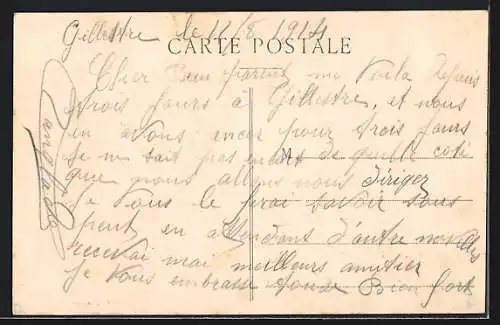 Gillestre le 11/8 1914
CARTE POSTALE
Cher Bien parent me voila depuis
trois jours à Gillestre, et nous
en avons encor pour trois jours
je ne sait pas encore de quelle coti
que nous allons nous diriger
je vous le frai savoir sous
peut en attendans d'autre nouvelles
recevai mai meilleurs amitier
Je vous embrasse tous Bien fort